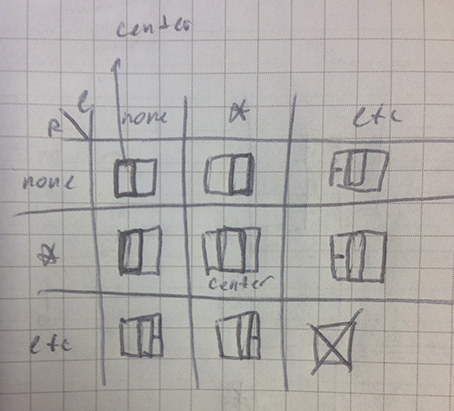 center
R l
none * etc
none
*
center
etc